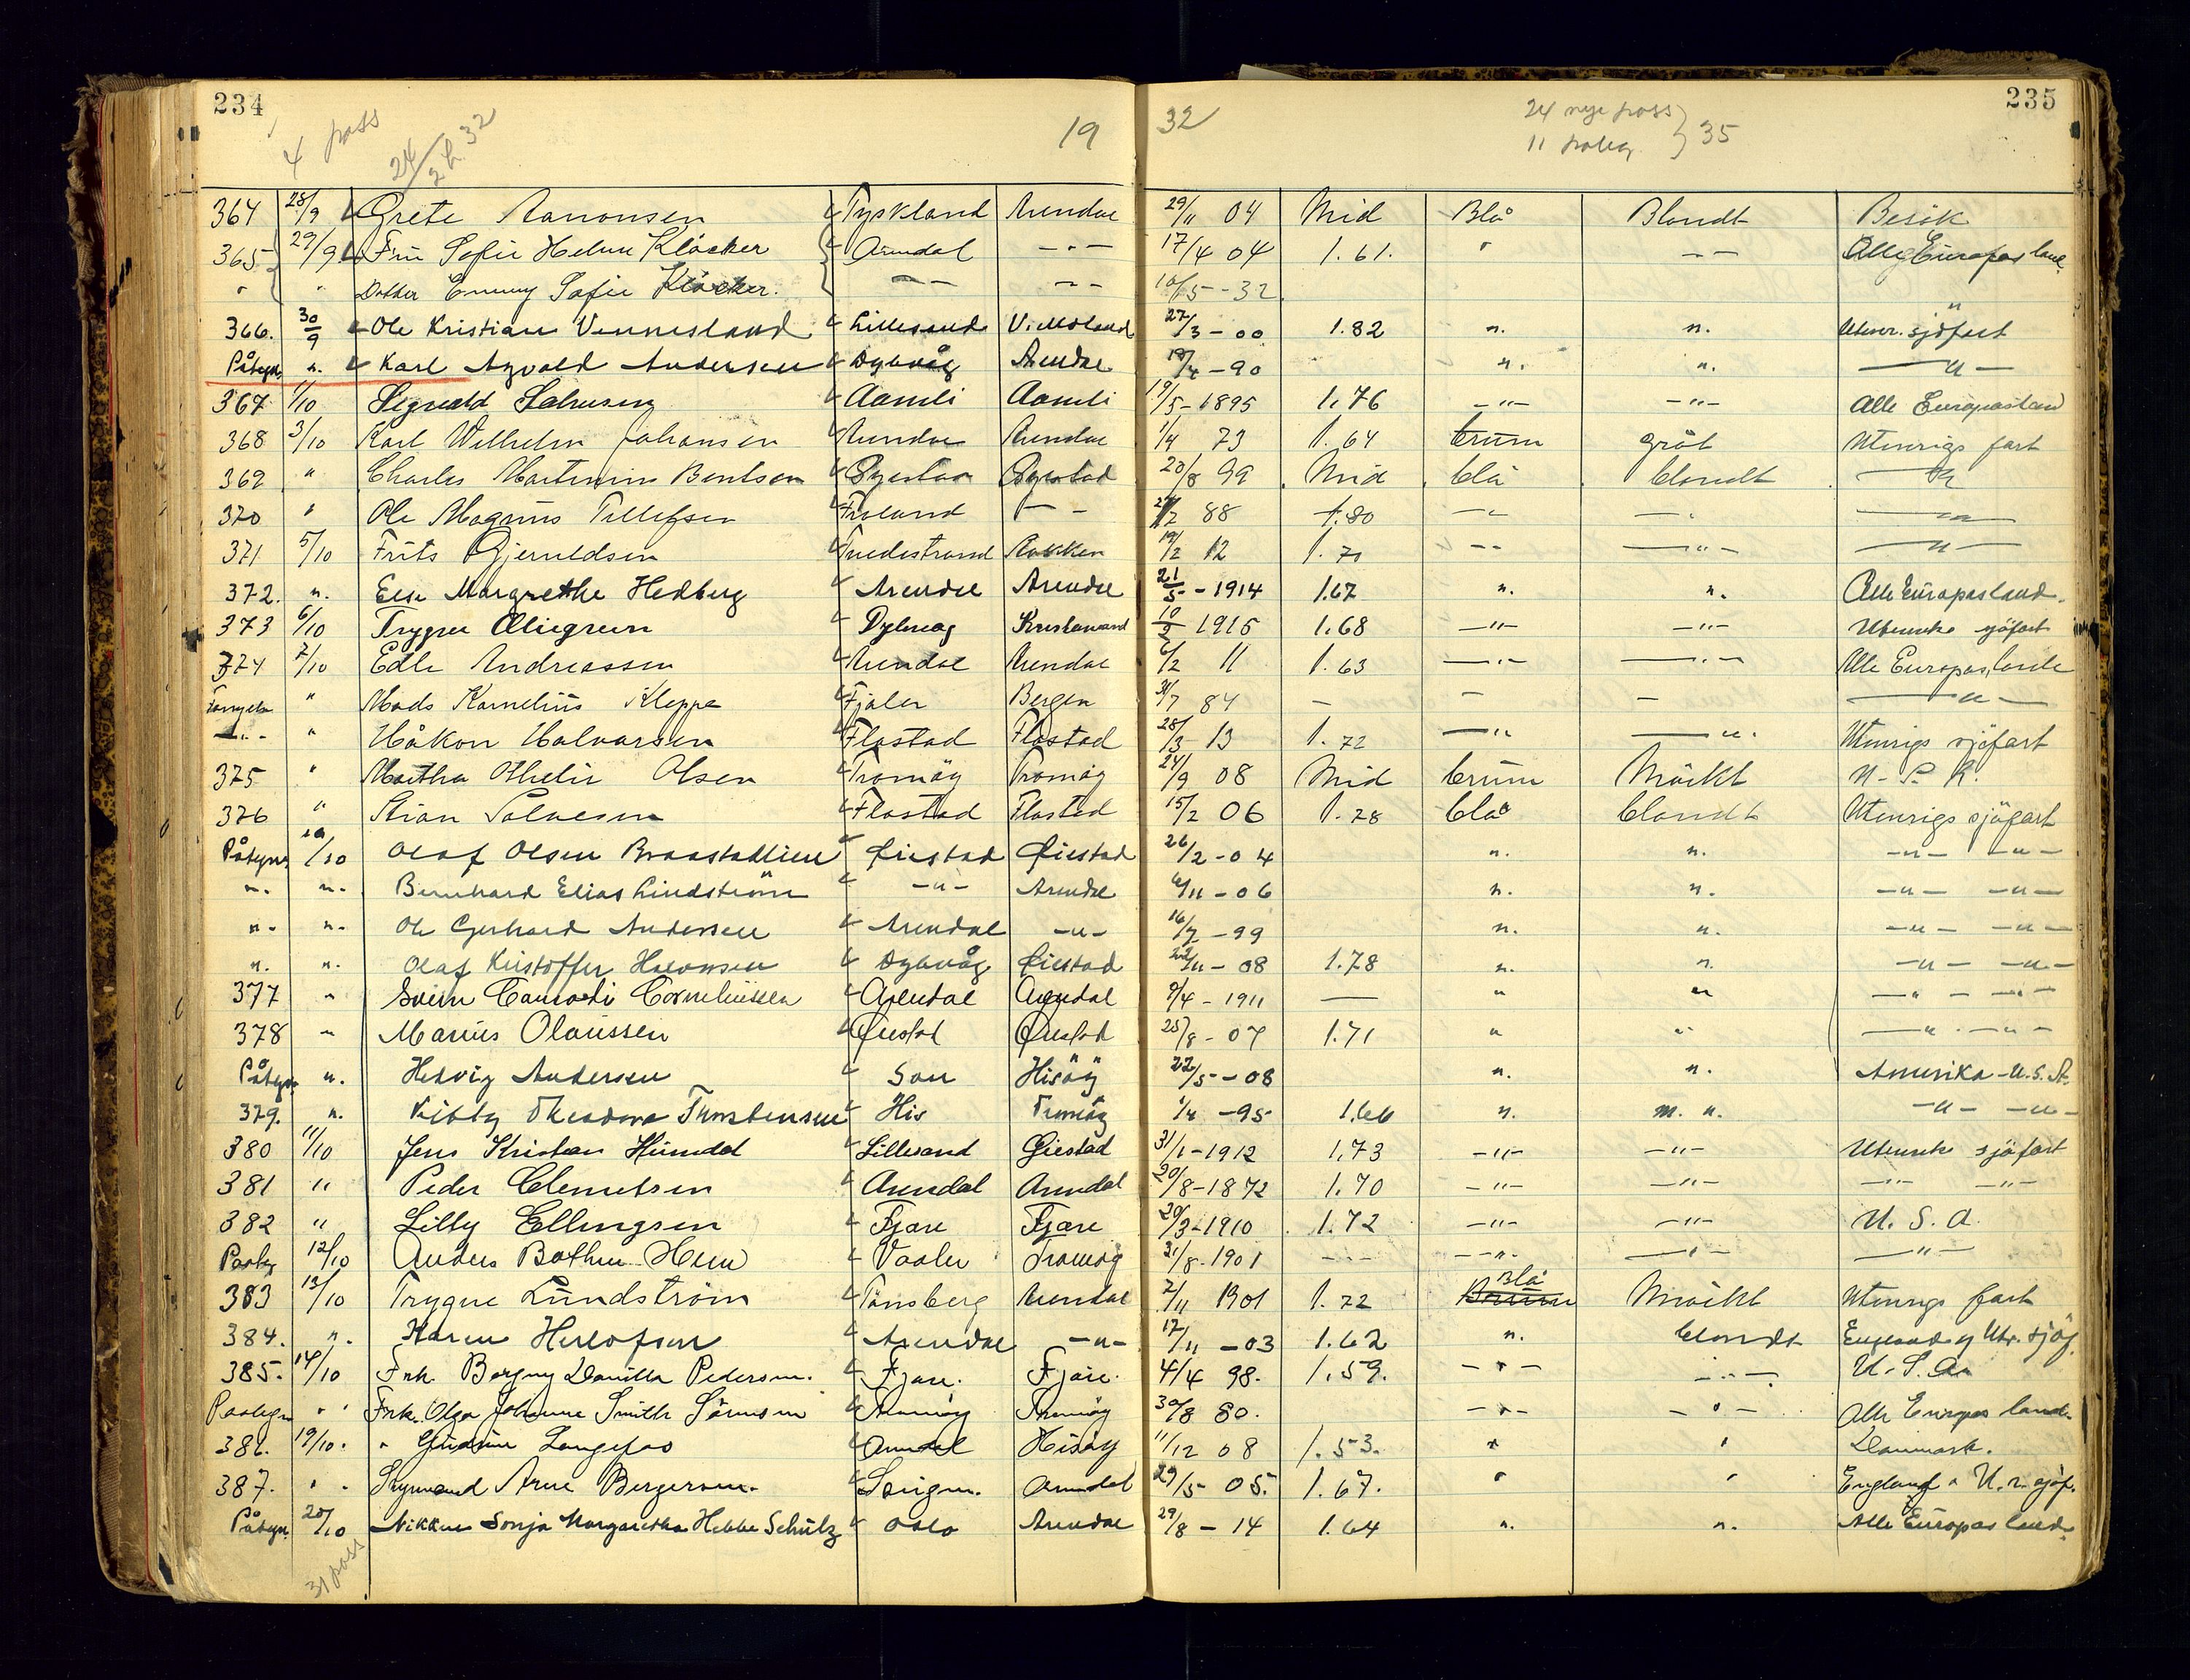 234
4 pass
24/9 32
19
32
24 nye pass
11 paateg. } 35
235
364 28/9 Grete Aanonsen Tyskland Arendal 29/11 04 Mid Blå Blondt Besök
365 29/9 Fru Sofie Helene Klöcker Arendal -"- 17/4 04 1.61. " -- Alle Europas land
" " Datter Emmy Sofie Klöcker. -- -- 10/5-32
366. 30/9 Ole Kristian Vennesland Lillesand V. Moland 27/3-00 1.82 ". ". Utenr. sjöfart
Påtegn. ". Karl Agvald Andersen Dybvåg Arendal 19/4-90 ". ". -"-
367 1/10 Sigvald Aamli Aamli 19/5-1895 1.76 -"- -"- Alle Europas land
368 3/10 Karl Wilhelm Johansen Arendal Arendal 1/4 73 1.64 brun gråt Utenrigs fart
369 " Charles Martinius Bentsen Öyestad Öyestad 20/8 99 Mid blå blondt -"-
370 " Ole Magnus Tellefsen Froland -- 27/2 88 1.80 -"- -"- -"-
371 5/10 Frits Gjeruldsen Tvedestrand Aakken 19/2 12 1.71 -- -"- -"-
372. ". Else Margrethe Hedberg Arendal Arendal 21/5-1914 1.67 ". ". Alle Europas land.
373 6/10 Trygve Almgren Dybvåg Kristiansand 10/2 1915 1.68 -"- -"- Utenriks sjöfart
374 7/10 Edle Andreassen Arendal Arendal 6/2 11 1.63 -"- -"- Alle Europas lande
Fornyelse " Mads Kornelius Kleppe Fjaler Bergen 31/7 84 - - - -"-
-"- " Håkon Halvorsen Flostad Flostad 28/3-13 1.72 -"- -"- Utenrigs sjöfart
375 " Martha Othelie Olsen Tromöy Tromöy 24/9 08 Mid brun Mörkt U.S.A.
376 " Stian Salvesen Flostad Flostad 15/2 06 1.78 blå blondt Utenrigs sjöfart
Påtegn. 10/10 Olaf Olsen Braastadlien Öiestad Öiestad 26/2-04 ". ". -"- -"-
". ". Bernhard Elias Lindström -"- Arendal 6/11-06 ". ". -"- -"-
". ". Ole Gerhard Andersen Arendal -"- 16/7-99 ". ". -"- -"-
". ". Olaf Kristoffer Halvorsen Dybvåg Öiestad 22/11-08 1.78 ". ". -"- -"-
377 " Svern Corneliussen Arendal Arendal 9/4-1911 — " " -"- -"-
378 " Marius Olaussen Öiestad Öiestad 25/8-07 1.71 " " -"- -"-
Påtegn. ". Hedvig Andersen Son Hisöy 22/5-08 ". ". Amerika - U.S.A.
379. ". Kitty Theodora Thorstensen His Tromöy 1/4-95 1.66 ". m. ". -"- -"-
380 11/10 Jens Kristian Hundal Lillesand Öiestad 31/1-1912 1.73 -"- -"- Utenriks sjöfart
381 " Peder Clemetsen Arendal Arendal 20/8-1872 1.70 -"- -"- -"- -"-
382 " Lilly Ellingsen Fjære Fjære 20/3-1910 1.72 -"- -"- U.S.A.
Paateg 12/10 Anders Bothen Hem Vaaler Tromöy 31/8-1901 --- -"- -"- -"-
383 13/10 Trygve Lundström Tönsberg Arendal 2/11 1901 1.72 Brun Blå Mörkt Utenrigs fart
384. ". Karen Herlofsen Arendal -"- 17/11-03 1.62 ". blondt England og Utr. sjöf.
385. 14/10 Frk. Borgny Danilla Pedersen. Fjære. Fjære. 4/4 98. 1.59. -"- -"- U.S.A.
Paategn " " Frk. Olga Johanne Smith Sörensen Tromöy Tromöy 30/8 80. -"- -"- Alle Europas land.
386. 19/10. " Gudrun Langefos Arendal Hisöy 11/12 08 1.53. " " Danmark.
387. " " Styrmand Arne Bergersen. Arendal 29/5-05. 1.67. " " England o U.r. sjöf.
Påtegn. 20/10 Nikken Sonja Margaretha Hebbe Schultz Oslo Arendal 29/8-14 1.64 ". ". Alle Europas lande
31 pass